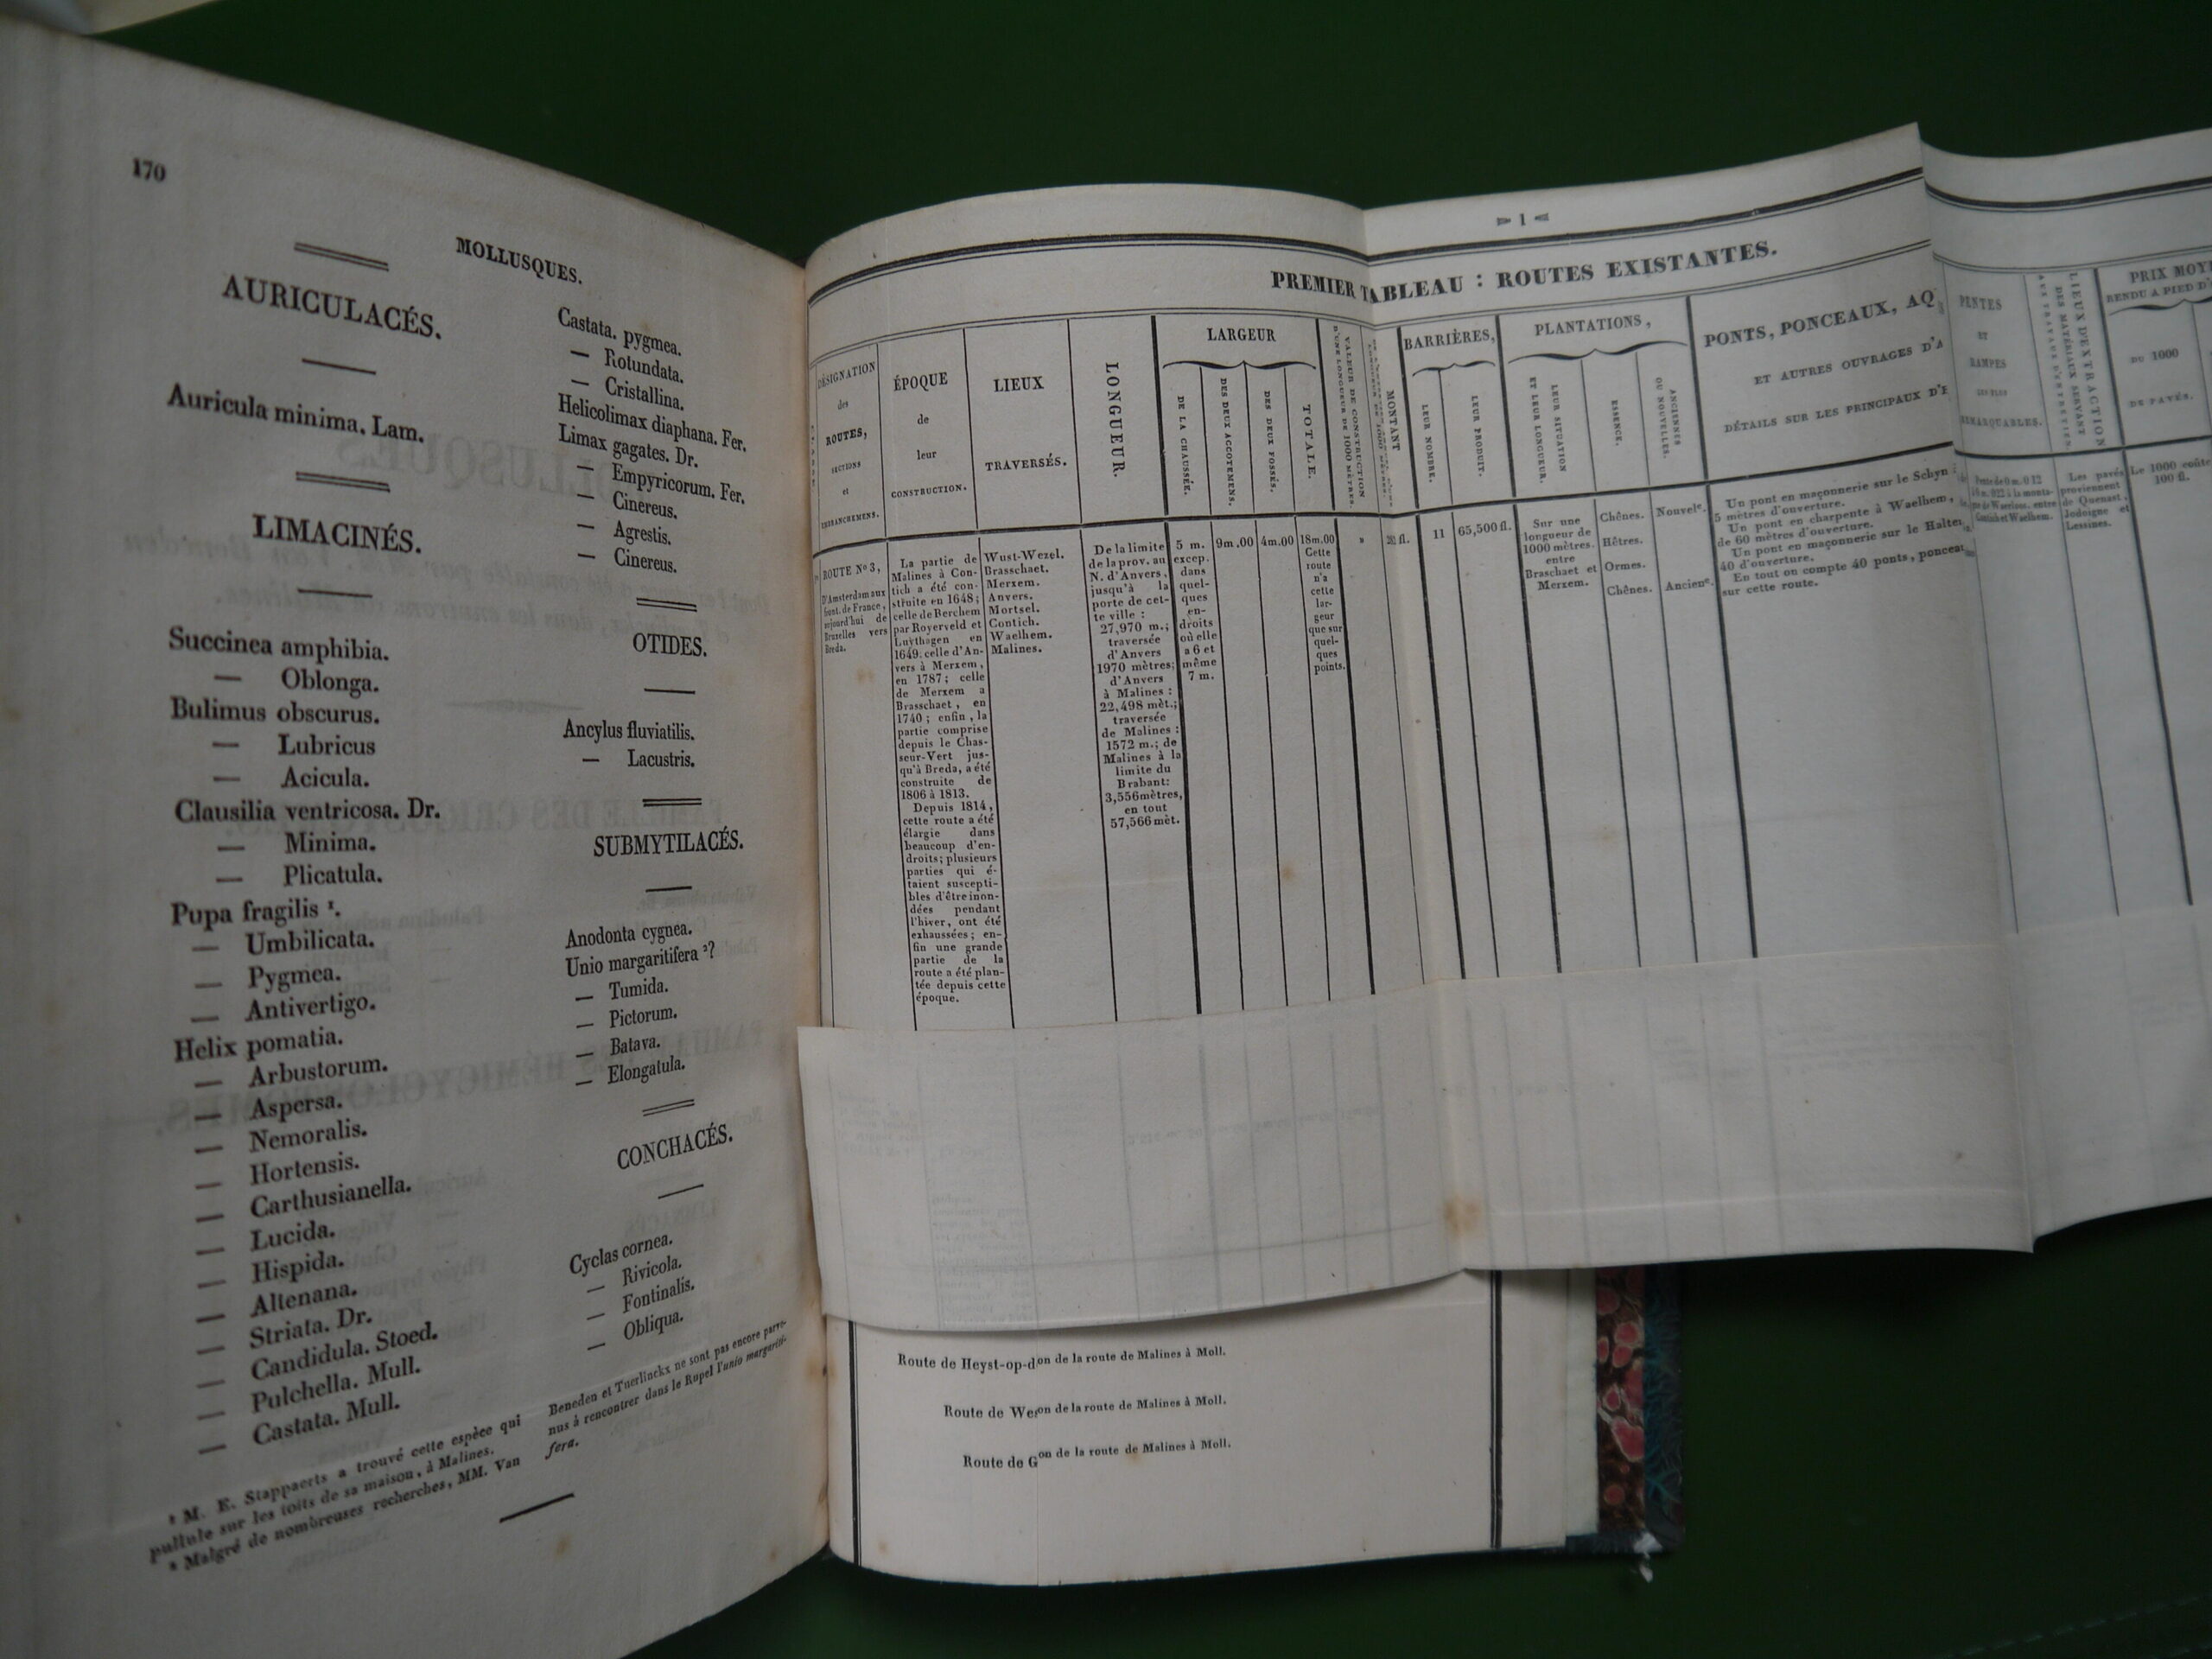 170
MOLLUSQUES.
AURICULACÉS.
Auricula minima. Lam.
LIMACINÉS.
Succinea amphibia.
— Oblonga.
Bulimus obscurus.
— Lubricus
— Acicula.
Clausilia ventricosa. Dr.
— Minima.
— Plicatula.
Pupa fragilis ¹.
— Umbilicata.
— Pygmea.
— Antivertigo.
Helix pomatia.
— Arbustorum.
— Aspersa.
— Nemoralis.
— Hortensis.
— Carthusianella.
— Lucida.
— Hispida.
— Altenana.
— Striata. Dr.
— Candidula. Stoed.
— Pulchella. Mull.
— Castata. Mull.
Castata. pygmea.
— Rotundata.
— Cristallina.
Helicolimax diaphana. Fer.
Limax gagates. Dr.
— Empyricorum. Fer.
— Cinereus.
— Agrestis.
— Cinereus.
OTIDES.
Ancylus fluviatilis.
— Lacustris.
SUBMYTILACÉS.
Anodonta cygnea.
Unio margaritifera ²?
— Tumida.
— Pictorum.
— Batava.
— Elongatula.
CONCHACÉS.
Cyclas cornea.
— Rivicola.
— Fontinalis.
— Obliqua.
¹ M. E. Stappaerts a trouvé cette espèce qui
pullule sur les toits de sa maison, à Malines.
² Malgré de nombreuses recherches, MM. Van
Beneden et Tuerlinckx ne sont pas encore parve-
nus à rencontrer dans le Rupel l'unio margariti-
fera.
1
PREMIER TABLEAU : ROUTES EXISTANTES.
DÉSIGNATION
des
ROUTES,
SECTIONS
et
EMBRANCHEMENS.
ÉPOQUE
de
leur
CONSTRUCTION.
LIEUX
TRAVERSÉS.
LONGUEUR.
LARGEUR
DE LA CHAUSSÉE.
DES DEUX ACCOTEMENS.
DES DEUX FOSSÉS.
TOTALE.
VALEUR DE CONSTRUCTION
D'UNE LONGUEUR DE 1000 MÈTRES.
MONTANT
BARRIÈRES,
LEUR NOMBRE.
LEUR PRODUIT.
PLANTATIONS,
LEUR SITUATION
ET LEUR LONGUEUR.
ESSENCE.
ANCIENNES
OU NOUVELLES.
PONTS, PONCEAUX, AQ
ET AUTRES OUVRAGES D'A
DÉTAILS SUR LES PRINCIPAUX D'E
PENTES
ET
RAMPES
LES PLUS
REMARQUABLES.
LIEUX D'EXTRACTION
DES MATÉRIAUX SERVANT
AUX TRAVAUX D'ENTRETIEN
PRIX MOYE
RENDU A PIED D'
DU 1000
DE PAVÉS.
ROUTE No 3,
D'Amsterdam aux
front. de France,
aujourd'hui de
Bruxelles vers
Breda.
La partie de
Malines à Con-
tich a été con-
struite en 1648;
celle de Berchem
par Royerveld et
Luythagen en
1649; celle d'An-
vers à Merxem,
en 1787; celle
de Merxem a
Brasschaet, en
1740; enfin, la
partie comprise
depuis le Chas-
seur-Vert jus-
qu'à Breda, a été
construite de
1806 à 1813.
Depuis 1814,
cette route a été
élargie dans
beaucoup d'en-
droits; plusieurs
parties qui é-
taient suscepti-
bles d'être inon-
dées pendant
l'hiver, ont été
exhaussées; en-
fin une grande
partie de la
route a été plan-
tée depuis cette
époque.
Wust-Wezel.
Brasschaet.
Merxem.
Anvers.
Mortsel.
Contich.
Waelhem.
Malines.
De la limite
de la prov. au
N. d'Anvers,
jusqu'à la
porte de cet-
te ville :
27,970 m.;
traversée
d'Anvers
1970 mètres;
d'Anvers
à Malines :
22,498 mèt.;
traversée
de Malines :
1572 m.; de
Malines à la
limite du
Brabant:
3,556mètres,
en tout
57,566 mèt.
5 m.
excep.
dans
quel-
ques
en-
droits
où elle
a 6 et
même
7 m.
9m,00
4m.00
18m.00
Cette
route
n'a
cette
lar-
geur
que sur
quel-
ques
points.
»
fl.
11
65,500 fl.
Sur une
longueur de
1000 mètres.
entre
Braschaet et
Merxem.
Chênes.
Hêtres.
Ormes.
Chênes.
Nouvele.
Anciene.
Un pont en maçonnerie sur le Schyn
5 mètres d'ouverture.
Un pont en charpente à Waelhem,
de 60 mètres d'ouverture.
Un pont en maçonnerie sur le Halten
40 d'ouverture.
En tout on compte 40 ponts, ponceau
sur cette route.
Pente de 0 m. 0 12
à 0 m. 022 à la monta-
gne de Waerloos, entre
Contich et Waelhem.
Les pavés
proviennent
de Quenast,
Jodoigne et
Lessines.
Le 1000 coûte
100 fl.
Route de Heyst-op-d
on de la route de Malines à Moll.
Route de We
on de la route de Malines à Moll.
Route de G
on de la route de Malines à Moll.